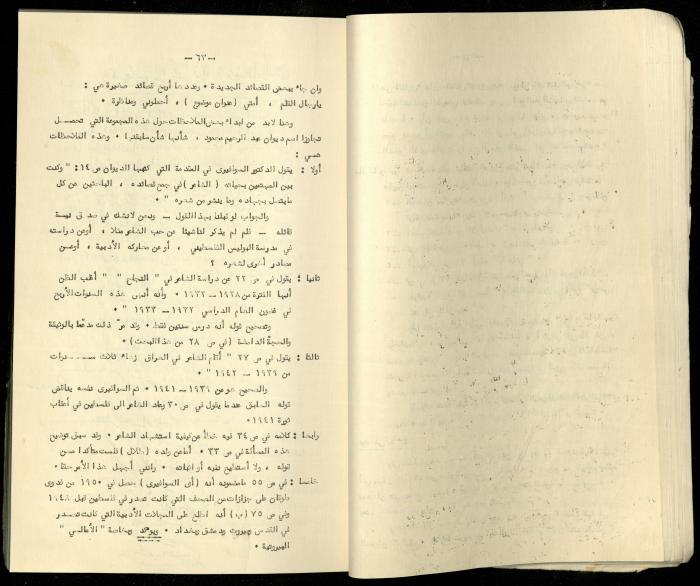 — ٦٧ —
وان جاء ببعض القصائد الجديدة • وعددها أربع قصائد صغيرة هي :
يارجال القلم ، أمتي (عنوان موضوع ) ، أخطوني ومناظرة •
وهنا لابد من ابداء بعض الملاحظات حول هذه المجموعة التي تحمل
تجاوزا اسم ديوان عبد الرحيم محمود ، شأنها شأن سابقتها • وهذه الملاحظات
هي :
أولا : يقول الدكتور السوافيري في المقدمة التي كتبها الديوان ص ١٤ : " وكنت
بين المهتمين بحياته ( الشاعر ) في جمع قصائده ، الباحثين عن كل
مايتصل بجهاده وما ينشر من شعره " •
والجواب لو قبلنا بهذا القول — ونحن لانشك في صدق نية
قائله — فلم لم يذكر لناشيئا عن حب الشاعر مثلا ، أوعن دراسته
في مدرسة البوليس الفلسطيني ، أو عن معاركه الأدبية ، أوعن
مصادر أخرى لشعره ؟
ثانيا : يقول في ص ٢٢ عن دراسة الشاعر في " النجاح " " أغلب الظن
أنها الفترة من ١٩٢٨ — ١٩٣٢ • وأنه أنهى هذه السنوات الأربع
في غضون العام الدراسي ١٩٣٢ — ١٩٣٣ " •
وتصحيح قوله أنه درس سنتين فقط • وقد مرّ ذلك مدعّما بالوثيقة
والحجة الدامغة ( في ص ٢٨ من هذا البحث ) •
ثالثا : يقول في ص ٢٧ " أقام الشاعر في العراق زهاء ثلاث سنوات
من ١٩٣٩ — ١٩٤٢ " •
والصحيح هو من ١٩٣٩ — ١٩٤١ • ثم السوافيرى نفسه يناقض
قوله السابق عندما يقول في ص ٣٠ وعاد الشاعر الى فلسطين في أعقاب
ثورة ١٩٤١ •
رابعا : كلامه في ص ٣٤ فيه خطأ عن كيفية استشهاد الشاعر • وقد سبق توضيح
هذه المسألة في ص ٣٣ • أما عن ولده ( طلال ) فلست متأكدا من
قوله ، ولا أستطيع نفيه أو اثباته • وانني أجهل هذا الأمر حقا •
خامسا : في ص ٥٥ مامضمونه أنه ( أى السوافيرى ) حصل في ١٩٥٠ من فدوى
طوقان على جزازات من الصحف التي كانت تصدر في فلسطين قبل ١٩٤٨
وفي ص ٧٥ ( ب ) أنه اطلع على المجلات الأدبية التي كانت تصدر
في القدس وبيروت ودمشق وبغداد • وبخاصة " الأمالي "
البيروتية •